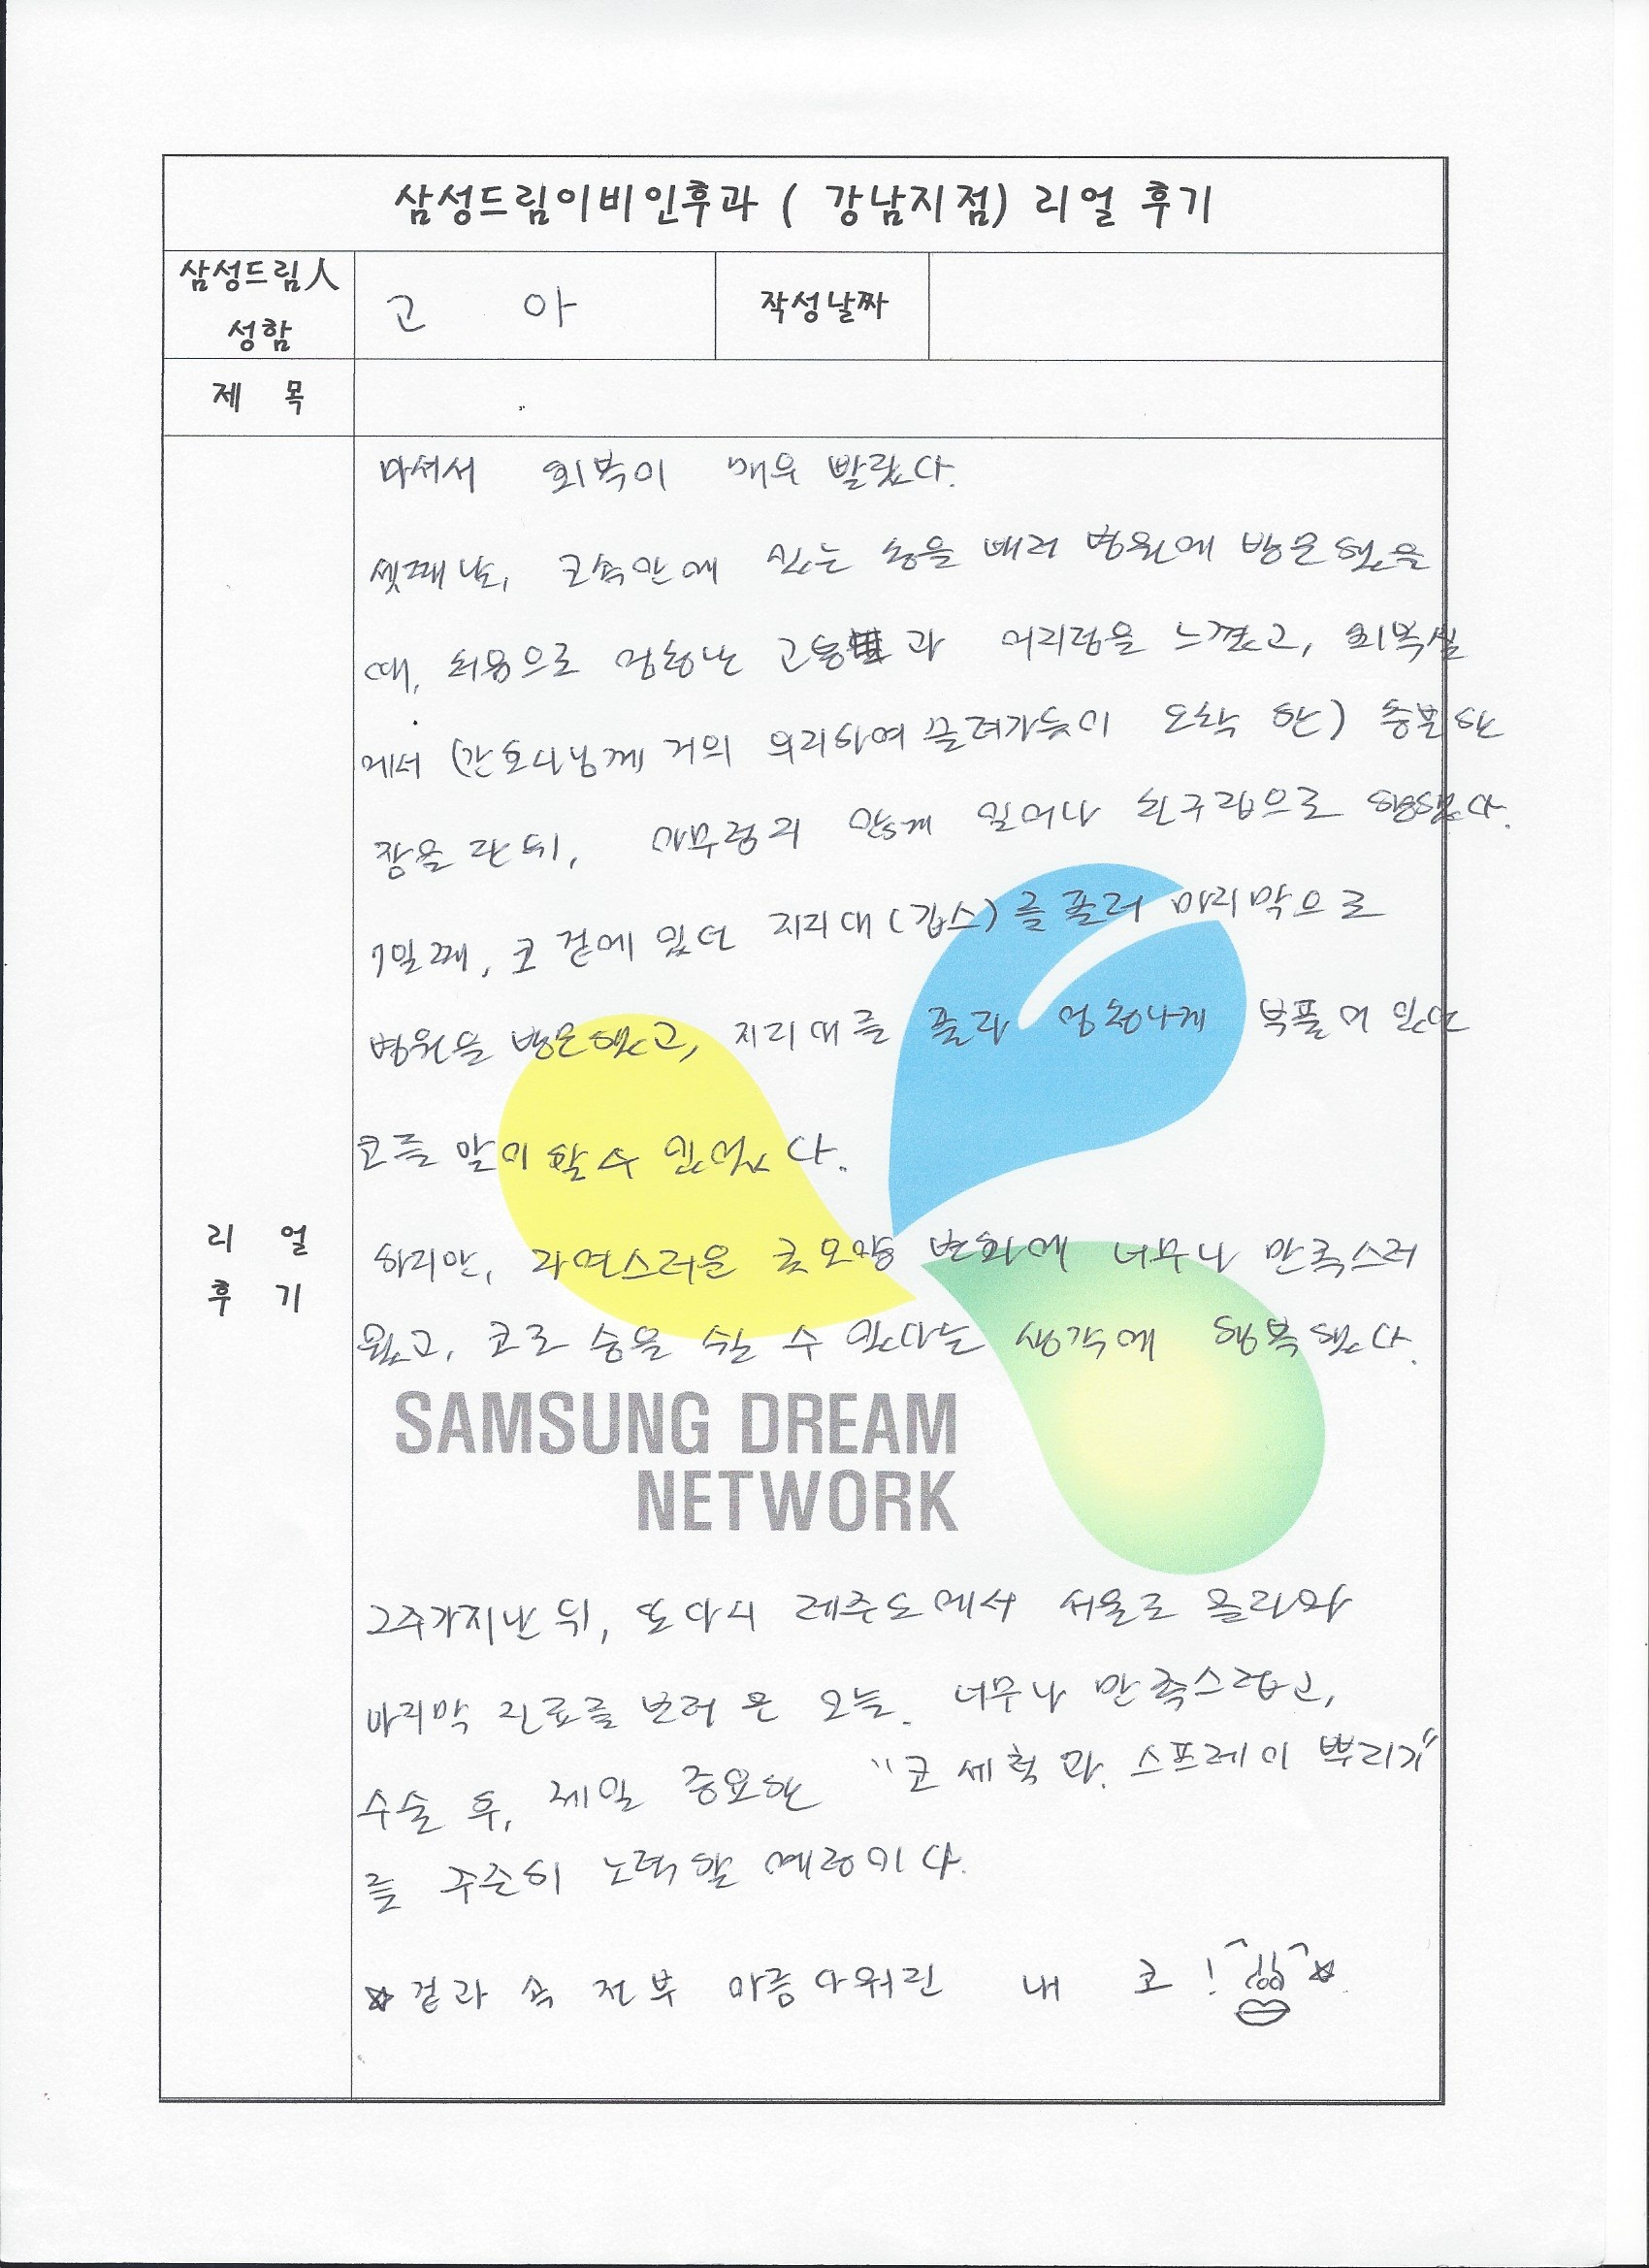 삼성드림이비인후과 ( 강남지점) 리얼 후기
삼성드림人
성함
고 아
작성날짜
제 목
리 얼
후 기
마셔서 회복이 매우 빨랐다.
셋째날, 코속안에 있는 솜을 빼러 병원에 방문했을
때, 처음으로 엄청난 고통과 어지럼을 느꼈고, 회복실
에서 (간호사님께 거의 의지하여 끌려가듯이 도착 한) 충분한
잠을 잔 뒤, 아무렇지 않게 일어나 친구집으로 향했다.
7일째, 코 겉에 있던 지지대(깁스)를 풀러 마지막으로
병원을 방문했고, 지지대를 풀자 엄청나게 부풀어 있던
코를 맞이 할 수 있었다.
하지만, 자연스러운 코모양 변화에 너무나 만족스러
웠고, 코로 숨을 쉴 수 있다는 생각에 행복했다.
SAMSUNG DREAM
NETWORK
2주가지난 뒤, 또 다시 제주도에서 서울로 올라와
마지막 진료를 보러 온 오늘. 너무나 만족스럽고,
수술 후, 제일 중요한 "코 세척과. 스프레이 뿌리기"
를 꾸준히 노력할 예정이다.
☆겉과 속 전부 아름다워진 내 코! ☆.